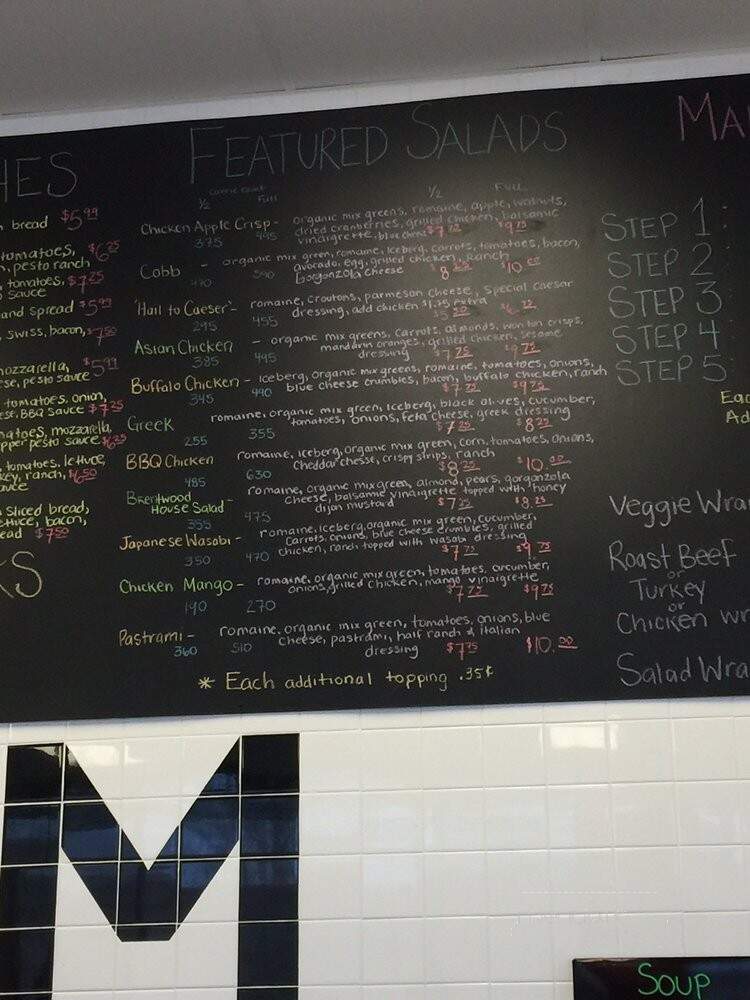 HES
bread $5.99
tomatoes, $6.25
pesto ranch
tomatoes, $7.25
sauce
and spread $5.99
swiss, bacon,
mozzarella, $5.99
pesto sauce
tomatoes, onion,
BBQ sauce $7.25
mozzarella,
pesto sauce $6.25
tomatoes, lettuce,
ranch, $6.50
sliced bread,
bacon,
$7.50
KS
FEATURED SALADS
calorie count
1/2 Full 1/2 FULL
Chicken Apple Crisp - organic mix greens, romaine, apple, walnuts,
dried cranberries, grilled chicken, balsamic
375 445 vinaigrette, blue cheese $7.75 $9.75
Cobb - organic mix green, romaine, iceberg, carrots, tomatoes, bacon,
avocado, egg, grilled chicken, ranch
470 590 gorgonzola cheese $8.25 $10.00
'Hail to Caeser' - romaine, croutons, parmeson cheese, special caesar
dressing, add chicken $1.75 extra
295 455
Asian Chicken - organic mix greens, carrots, almonds, won ton crisps,
mandarin oranges, grilled chicken, sesame
385 445 dressing $7.75 $9.75
Buffalo Chicken - iceberg, organic mix greens, romaine, tomatoes, onions,
blue cheese crumbles, bacon, buffalo chicken, ranch
345 490 $7.75 $9.75
Greek romaine, organic mix green, iceberg, black olives, cucumber,
tomatoes, onions, feta cheese, greek dressing
255 355 $7.25 $8.25
BBQ Chicken romaine, iceberg, organic mix green, corn, tomatoes, onions,
Cheddar cheese, crispy strips, ranch
485 630 $8.25 $10.00
Brentwood House Salad - romaine, organic mix green, almond, pears, gorgonzola
cheese, balsamic vinaigrette topped with honey
dijon mustard $7.25 $8.25
355 475
Japanese Wasabi - romaine, iceberg, organic mix green, cucumber,
carrots, onions, blue cheese crumbles, grilled
chicken, ranch topped with wasabi dressing
350 470 $7.75 $9.75
Chicken Mango - romaine, organic mix green, tomatoes, cucumber,
onions, grilled chicken, mango vinaigrette
190 270 $7.75 $9.75
Pastrami - romaine, organic mix green, tomatoes, onions, blue
cheese, pastrami, half ranch & italian
360 510 dressing $7.75 $10.00
* Each additional topping .35¢
MA
STEP 1:
STEP 2
STEP 3
STEP 4
STEP 5
Eac
Ad
Veggie Wra
Roast Beef
or
Turkey
or
Chicken wr
Salad Wra
M
SOUP